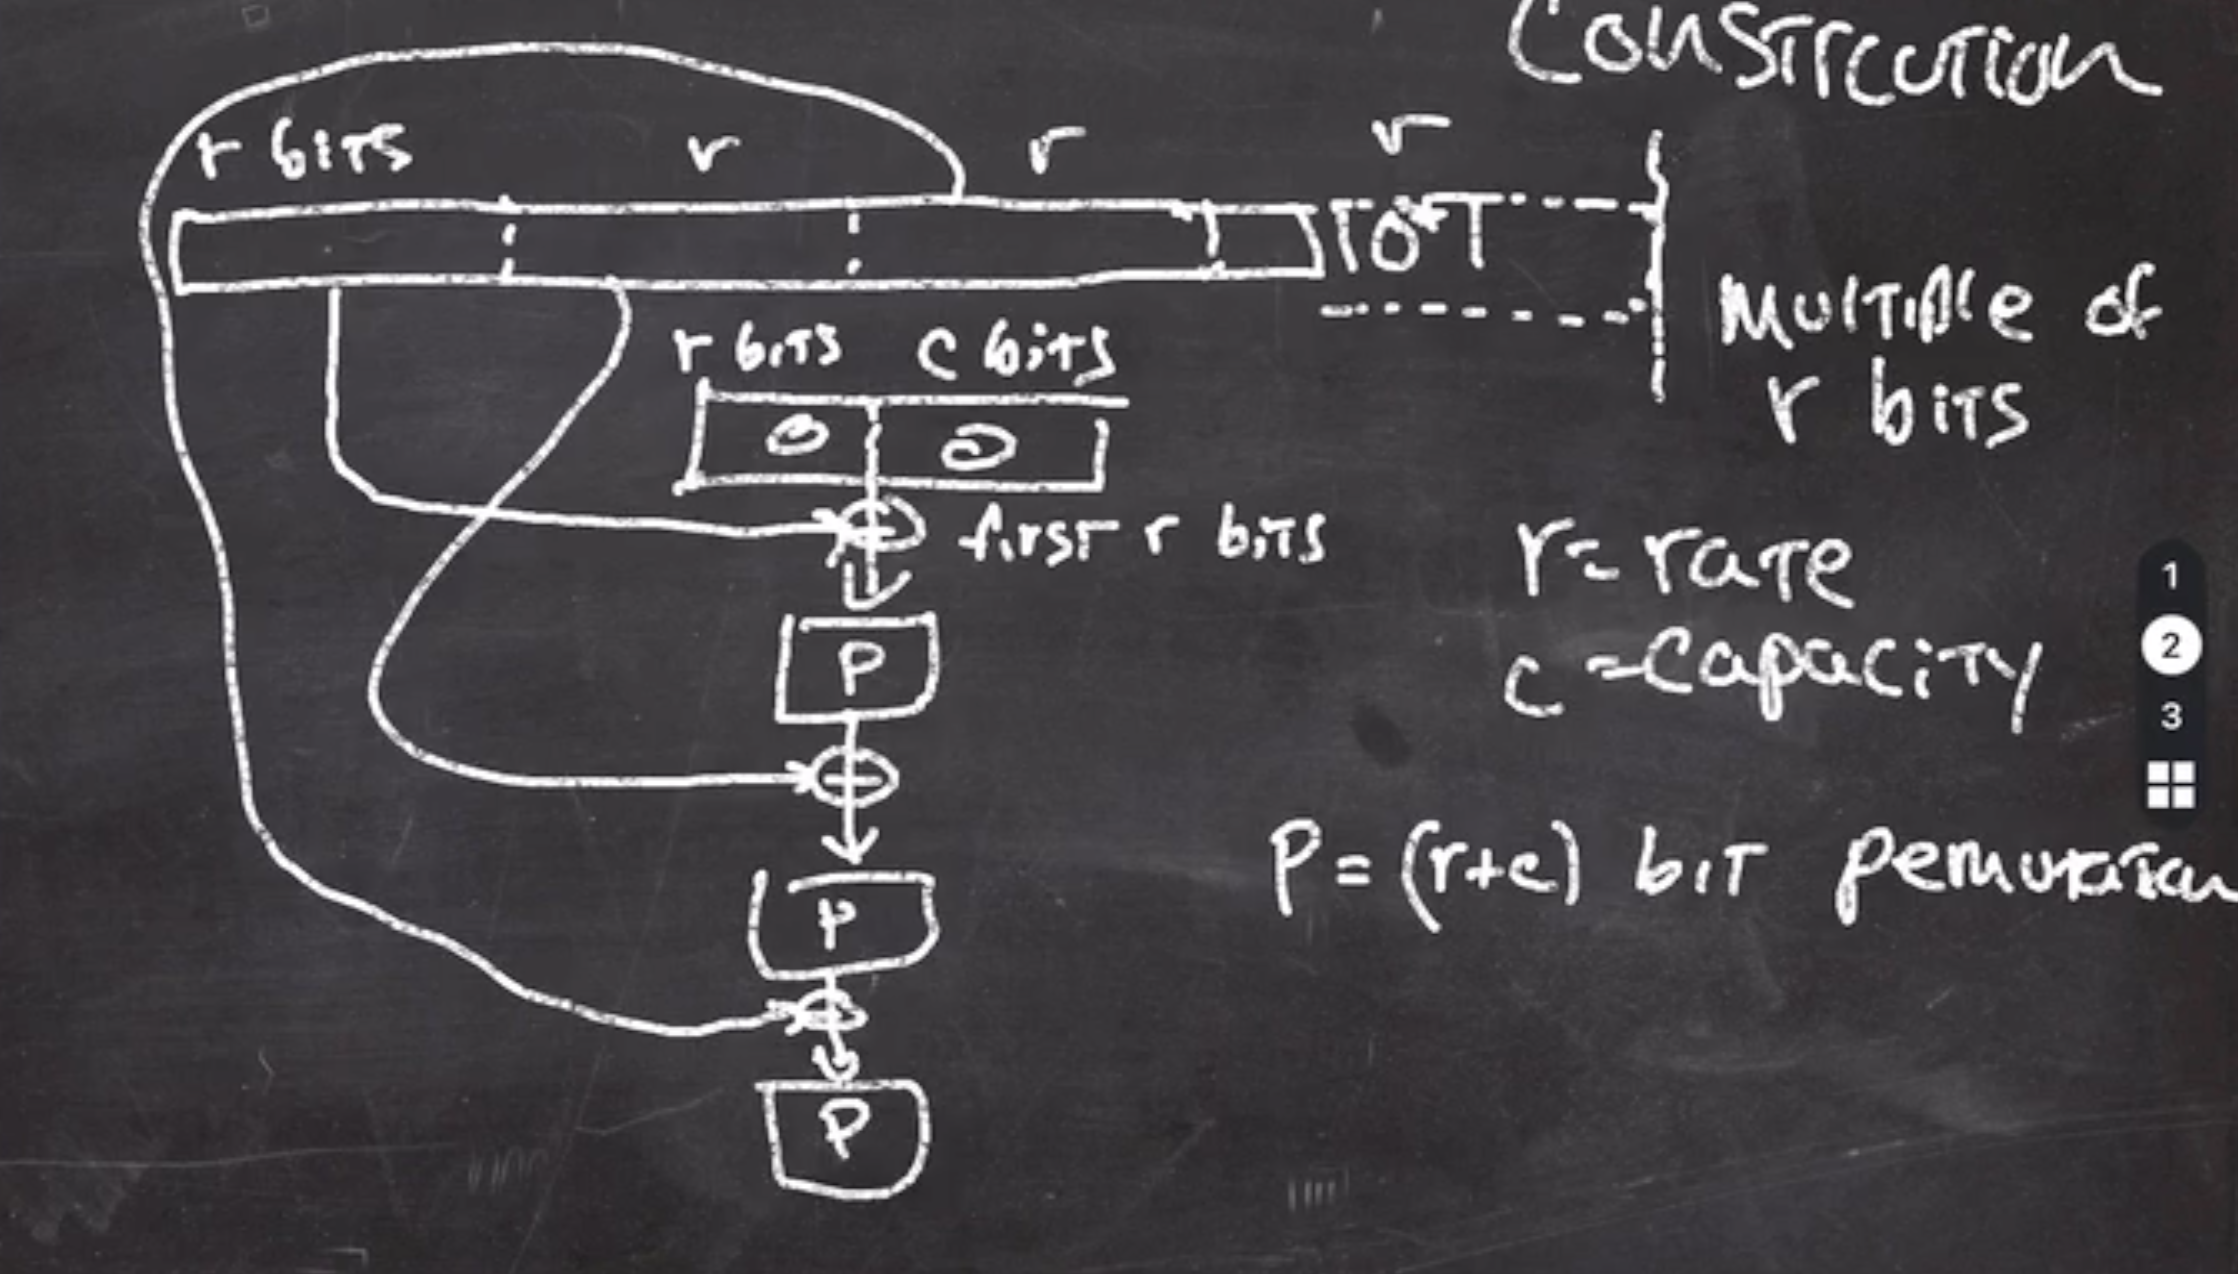 Construction
r bits r r r
10*1
Multiple of
r bits
r bits c bits
0 0
first r bits
r = rate
c = capacity
P
P = (r+c) bit permutation
P
P
1
2
3